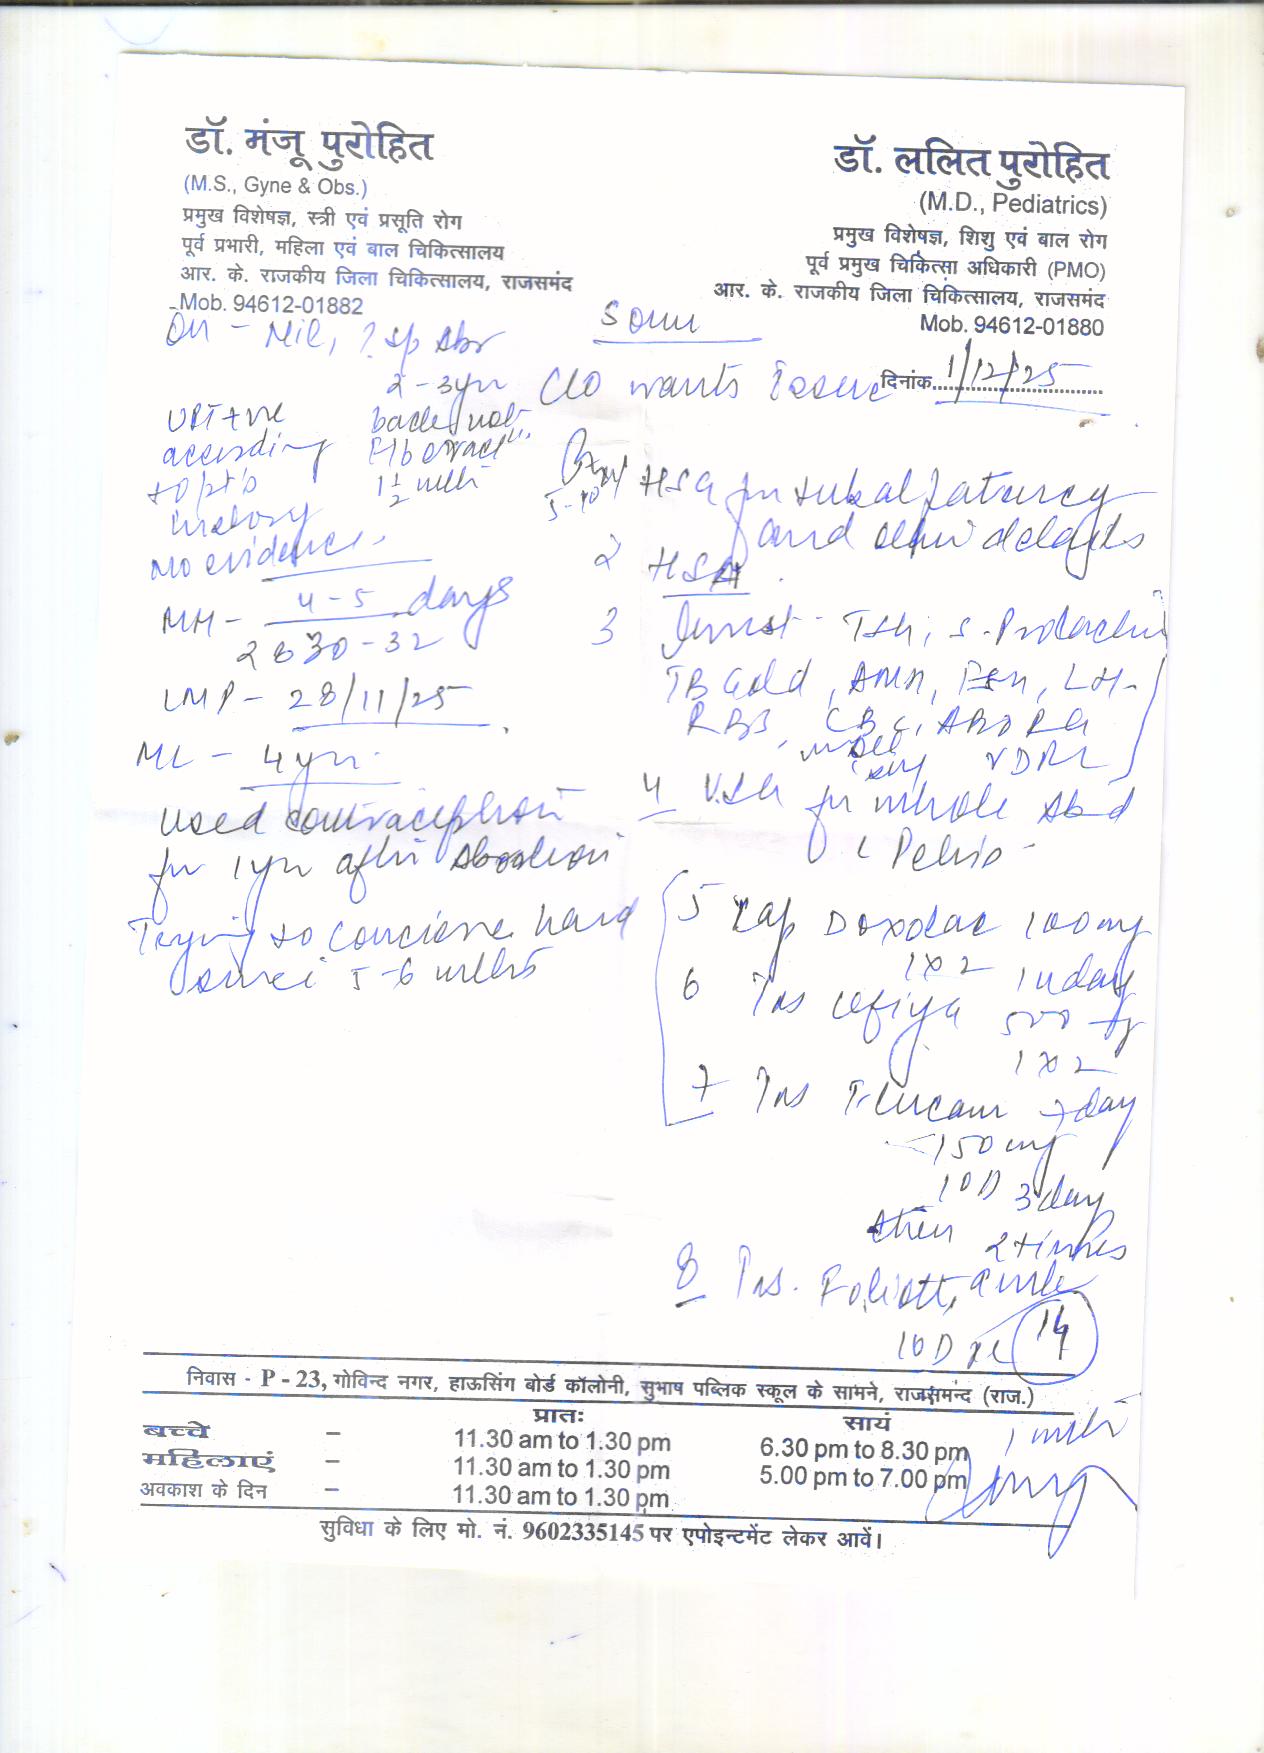 डॉ. मंजू पुरोहित
(M.S., Gyne & Obs.)
प्रमुख विशेषज्ञ, स्त्री एवं प्रसूति रोग
पूर्व प्रभारी, महिला एवं बाल चिकित्सालय
आर. के. राजकीय जिला चिकित्सालय, राजसमंद
Mob. 94612-01882
डॉ. ललित पुरोहित
(M.D., Pediatrics)
प्रमुख विशेषज्ञ, शिशु एवं बाल रोग
पूर्व प्रमुख चिकित्सा अधिकारी (PMO)
आर. के. राजकीय जिला चिकित्सालय, राजसमंद
Mob. 94612-01880
दिनांक 1/12/25
Nil, ? sp Abr
2-3yr
UPT +ve
according
to pt's
history
back, not
1 1/2 mth
No evidence.
MH - 4-5 days
30-32
LMP - 28/11/25
ML - 4yr
used contraception
for 1yr after Abortion
Trying to conceive hard
since 5-6 mths
C/O wants Issue
HSG for tubal patency
and other defects
2 HSA
3 Invest - TSH, S. Prolactin
TB Gold, AMH, FSH, LH
RBS, CBC, ABORH
VDRL
4 USG for whole Abd
& Pelvis
5 Cap Doxolac 100mg
1x2 day
6 500 mg
1x2
7 7 day
150mg
1OD 3 day
then 2 times
8
1OD x 14
1 mth
निवास - P - 23, गोविन्द नगर, हाऊसिंग बोर्ड कॉलोनी, सुभाष पब्लिक स्कूल के सामने, राजसमन्द (राज.)
प्रातः सायं
बच्चे - 11.30 am to 1.30 pm 6.30 pm to 8.30 pm
महिलाएं - 11.30 am to 1.30 pm 5.00 pm to 7.00 pm
अवकाश के दिन - 11.30 am to 1.30 pm
सुविधा के लिए मो. नं. 9602335145 पर एपोइन्टमेंट लेकर आवें।